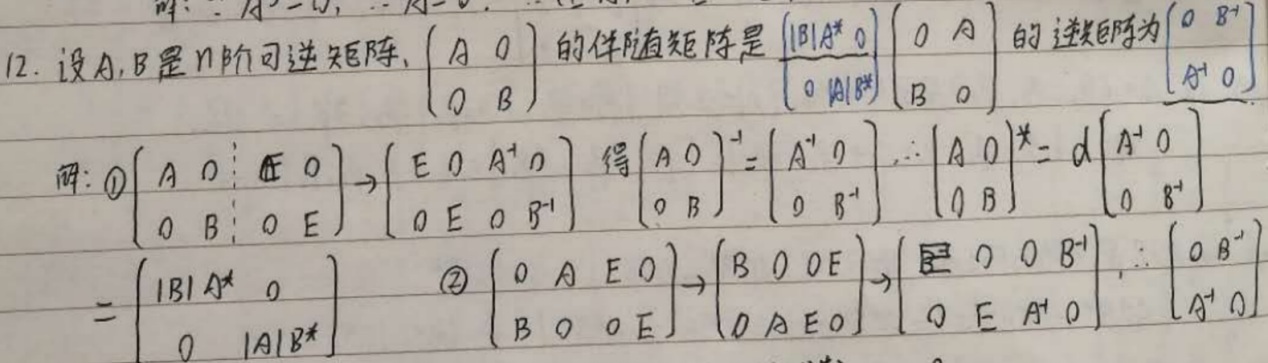 12. 设A,B是n阶可逆矩阵, (A 0 / 0 B) 的伴随矩阵是 (|B|A* 0 / 0 |A|B*) (0 A / B 0) 的逆矩阵为 (0 B⁻¹ / A⁻¹ 0)
解: ① (A 0 ⋮ E 0 / 0 B ⋮ 0 E) → (E 0 A⁻¹ 0 / 0 E 0 B⁻¹) 得 (A 0 / 0 B)⁻¹ = (A⁻¹ 0 / 0 B⁻¹) ,∴ (A 0 / 0 B)* = d (A⁻¹ 0 / 0 B⁻¹)
= (|B|A* 0 / 0 |A|B*) ② (0 A E 0 / B 0 0 E) → (B 0 0 E / 0 A E 0) → (E 0 0 B⁻¹ / 0 E A⁻¹ 0) ,∴ (0 B⁻¹ / A⁻¹ 0)